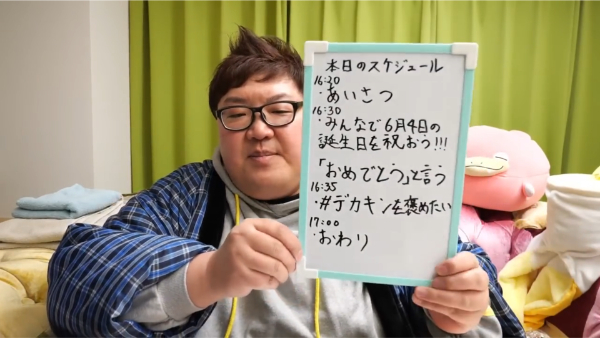 本日のスケジュール
16:20
・あいさつ
16:30
・みんなで6月4日の
誕生日を祝おう!!!
「おめでとう」と言う
16:35
・#デカキンを褒めたい
17:00
・おわり